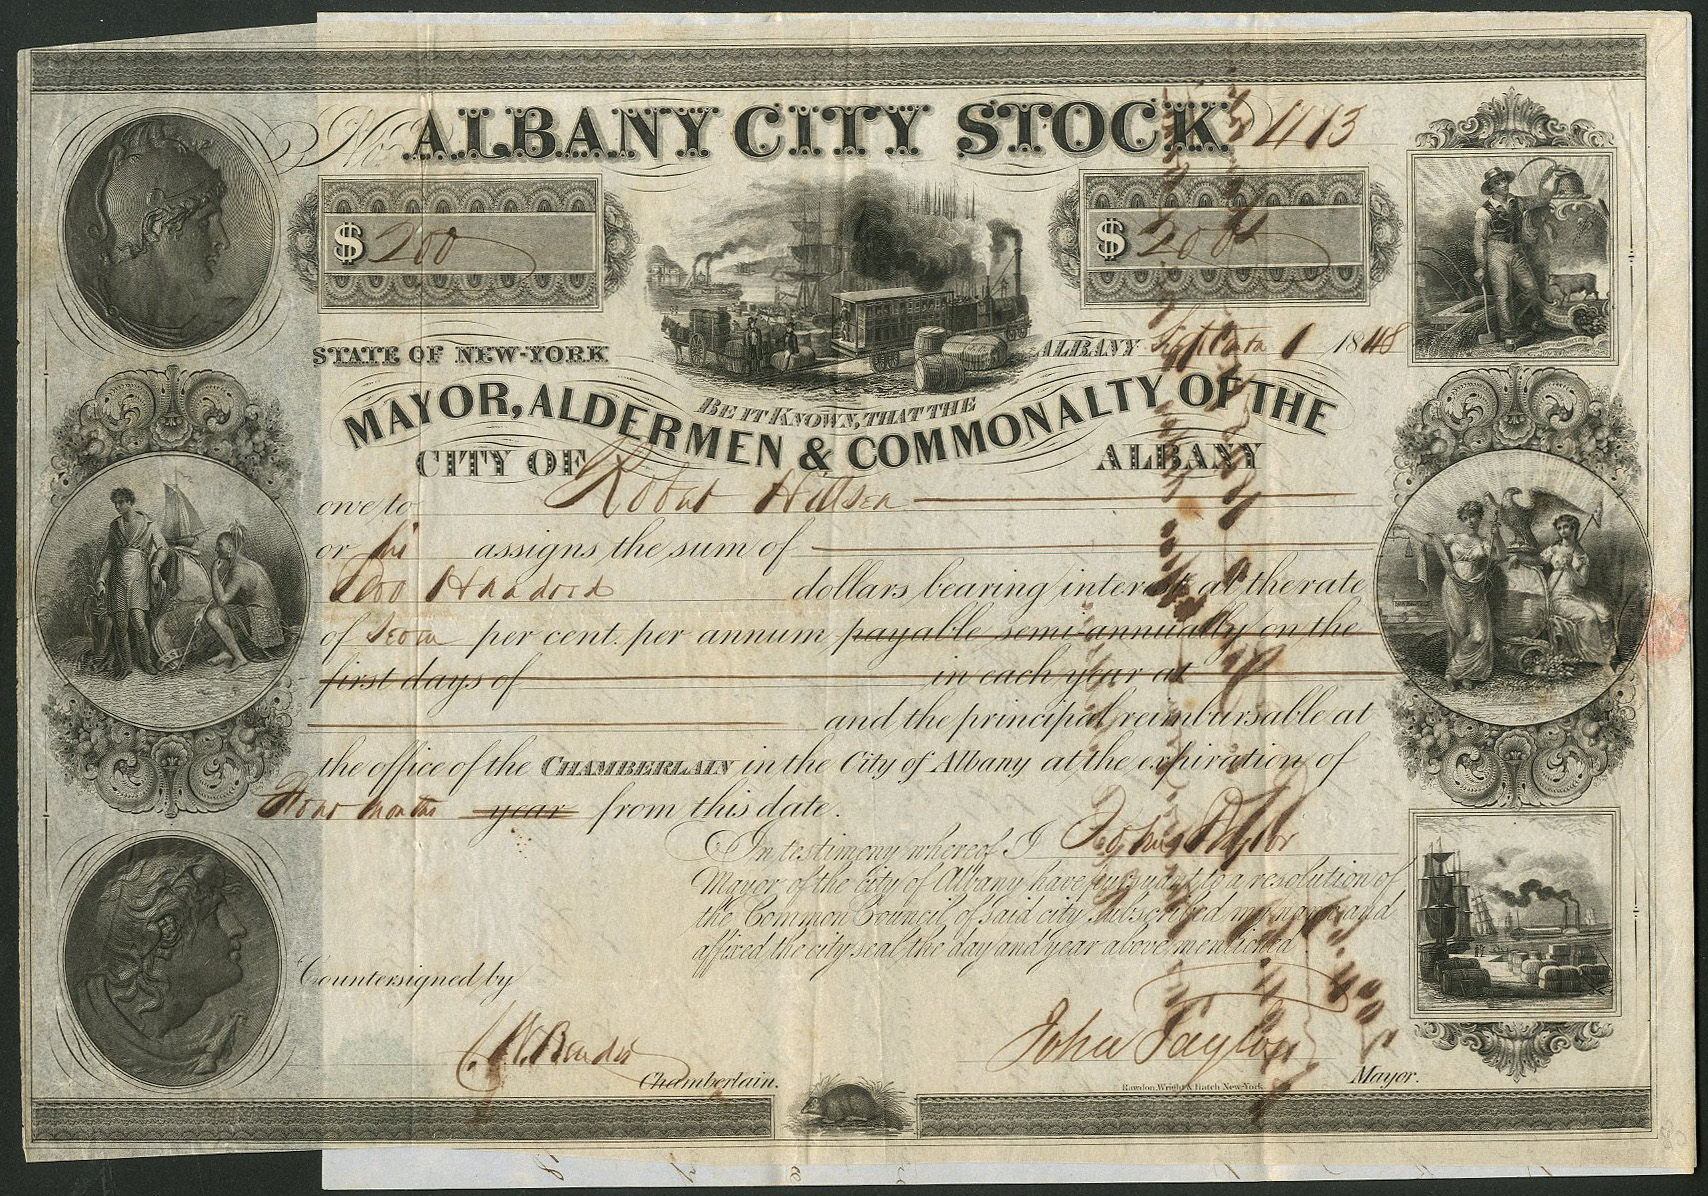 No. ALBANY CITY STOCK 1113
$ 200 $ 200
STATE OF NEW-YORK ALBANY September 1 1848
BE IT KNOWN, THAT THE
MAYOR, ALDERMEN & COMMONALTY OF THE
CITY OF ALBANY
owe to Robert
or his assigns the sum of
Two Hundred dollars bearing interest at the rate
of Seven per cent. per annum payable semi-annually on the
first days of in each year at
and the principal reimbursable at
the office of the CHAMBERLAIN in the City of Albany at the expiration of
Four months year from this date.
In testimony whereof I John Taylor
Mayor of the city of Albany have pursuant to a resolution of
the Common Council, of said city subscribed my name and
affixed the city seal the day and year above mentioned
Countersigned by
John Taylor
Chamberlain. Mayor.
Rawdon, Wright & Hatch New-York.